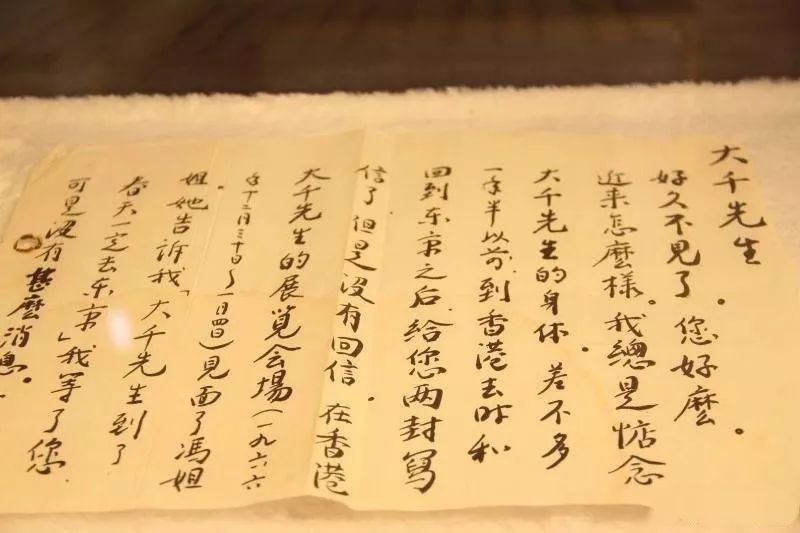 大千先生
好久不見了。您好麼。
近来怎麼様。我總是惦念
大千先生的身体。差不多
一年半以前到香港去时和
回到东京之后给您两封写
信了但是没有回信。在香港
大千先生的展览会場(一九六六
年十二月三十日～一月四日)見面了馮姐
姐。她告訴我「大千先生到了
春天一定去东京」我等了您
可是没有甚麼消息。